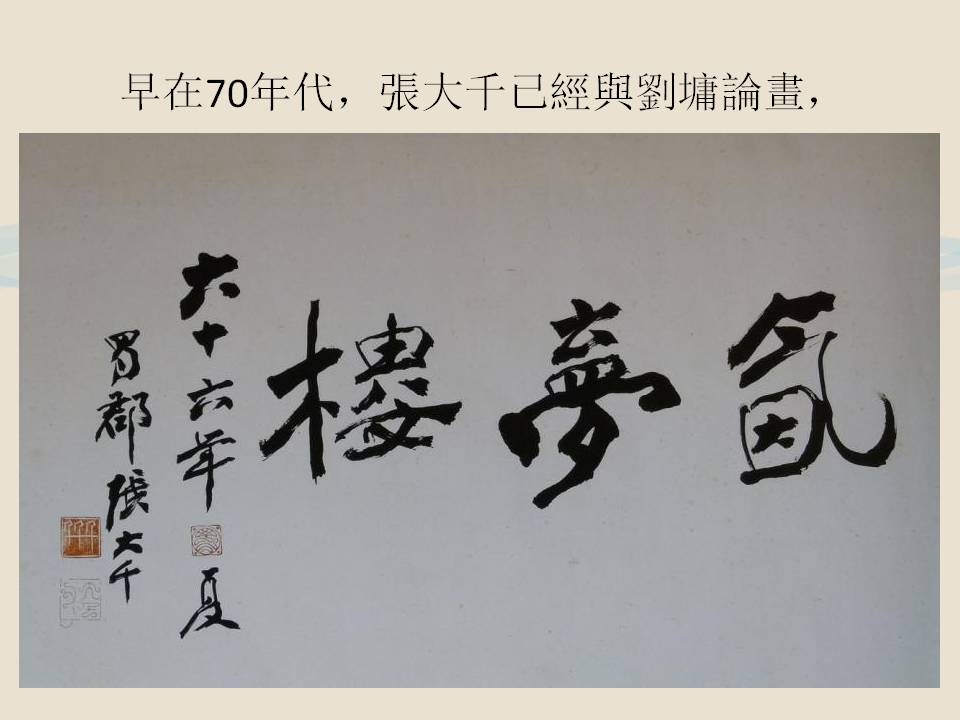 早在70年代，張大千已經與劉墉論畫，
氤夢樓
六十六年夏
蜀郡張大千